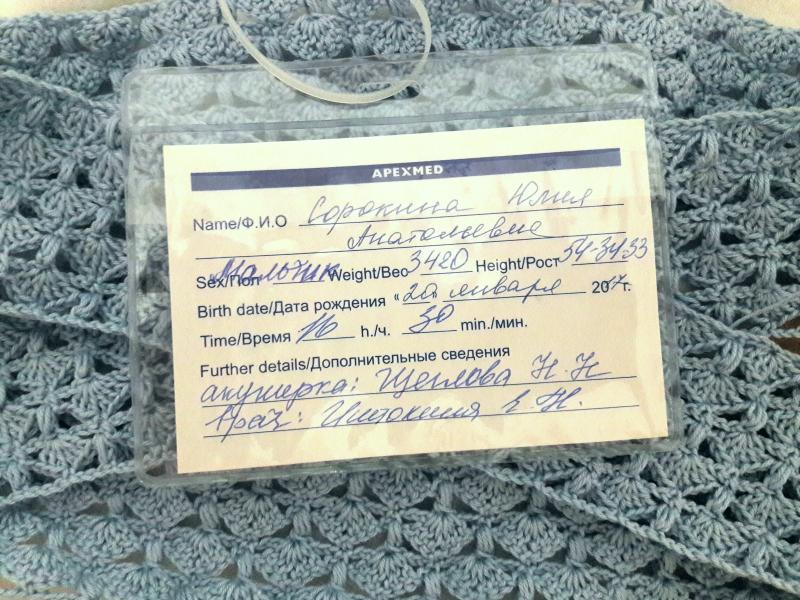 APEXMED
Name/Ф.И.О Сорокина Юлия
Анатольевна
Sex/Пол Мальчик Weight/Вес 3420 Height/Рост 54-34-33
Birth date/Дата рождения «20» января 2017г.
Time/Время 16 h./ч. 30 min./мин.
Further details/Дополнительные сведения
акушерка: Щеглова Н.Н
Врач: